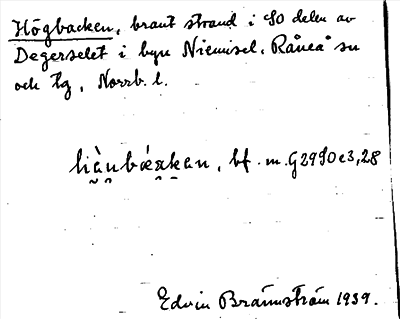 Högbacken, brant strand i SO delen av
Degerselet i byn Niemisel, Råneå sn
och tg, Norrb. l.
bf. m. G29S0c3,28
Edvin Brännström 1939.